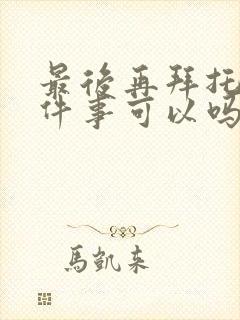 最後再拜托
件事可以吗
馬凱来